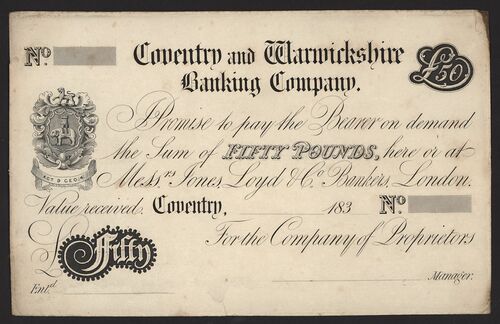 No.
Coventry and Warwickshire
Banking Company.
£50
I Promise to pay the Bearer on demand
the Sum of FIFTY POUNDS, here or at
Messrs Jones, Loyd & Co. Bankers, London.
ACT 9 GEO. 4
Value received. Coventry, 183 No.
For the Company of Proprietors
£ Fifty
Entd. Manager.